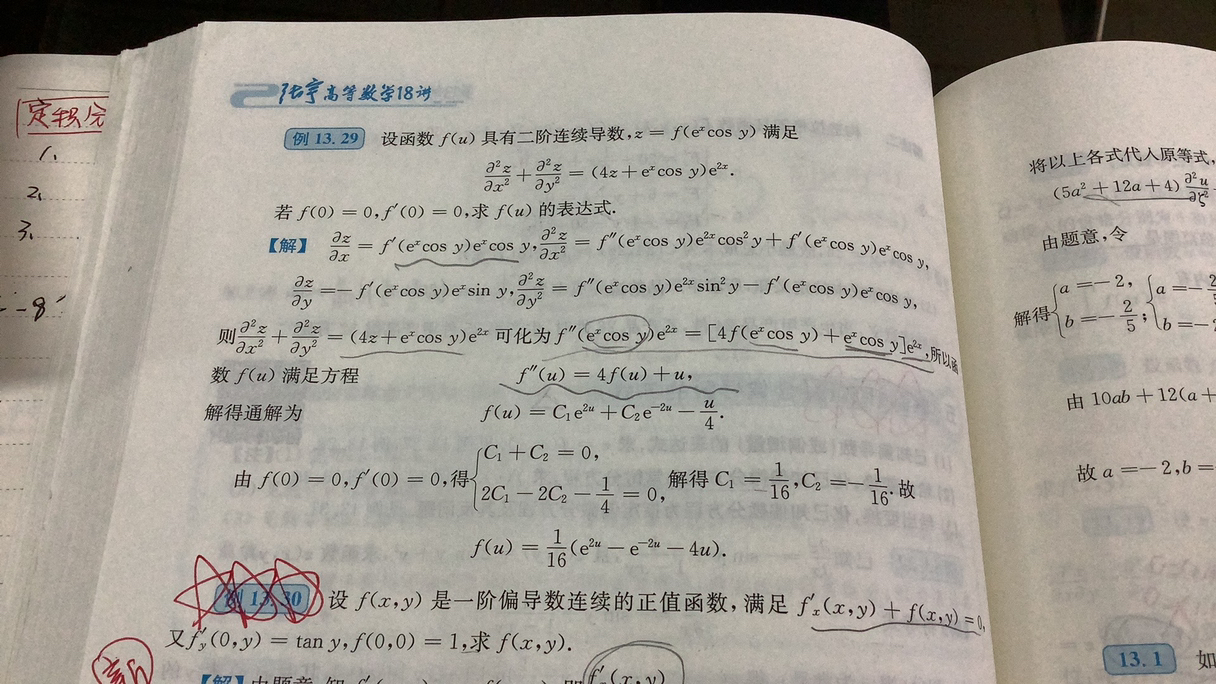 定积分
1.
2.
3.
张宇高等数学18讲
例 13.29 设函数 f(u) 具有二阶连续导数, z = f(eˣcos y) 满足
∂²z/∂x² + ∂²z/∂y² = (4z + eˣcos y)e²ˣ.
若 f(0) = 0, f′(0) = 0, 求 f(u) 的表达式.
【解】 ∂z/∂x = f′(eˣcos y)eˣcos y, ∂²z/∂x² = f″(eˣcos y)e²ˣcos²y + f′(eˣcos y)eˣcos y,
∂z/∂y = −f′(eˣcos y)eˣsin y, ∂²z/∂y² = f″(eˣcos y)e²ˣsin²y − f′(eˣcos y)eˣcos y,
则 ∂²z/∂x² + ∂²z/∂y² = (4z + eˣcos y)e²ˣ 可化为 f″(eˣcos y)e²ˣ = [4f(eˣcos y) + eˣcos y]e²ˣ, 所以函
数 f(u) 满足方程 f″(u) = 4f(u) + u,
解得通解为 f(u) = C₁e²ᵘ + C₂e⁻²ᵘ − u/4.
由 f(0) = 0, f′(0) = 0, 得 { C₁ + C₂ = 0, 2C₁ − 2C₂ − 1/4 = 0, 解得 C₁ = 1/16, C₂ = −1/16. 故
f(u) = 1/16(e²ᵘ − e⁻²ᵘ − 4u).
例 13.30 设 f(x,y) 是一阶偏导数连续的正值函数, 满足 f′ₓ(x,y) + f(x,y) = 0,
又 f′ᵧ(0,y) = tan y, f(0,0) = 1, 求 f(x,y).
【解】由题意, 知
f′ₓ(x,y)
将以上各式代入原等式,
(5a² + 12a + 4) ∂²u/∂ξ²
由题意, 令
解得 { a = −2, b = −2/5; { a = − b = −
由 10ab + 12(a +
故 a = −2, b =
13.1 如